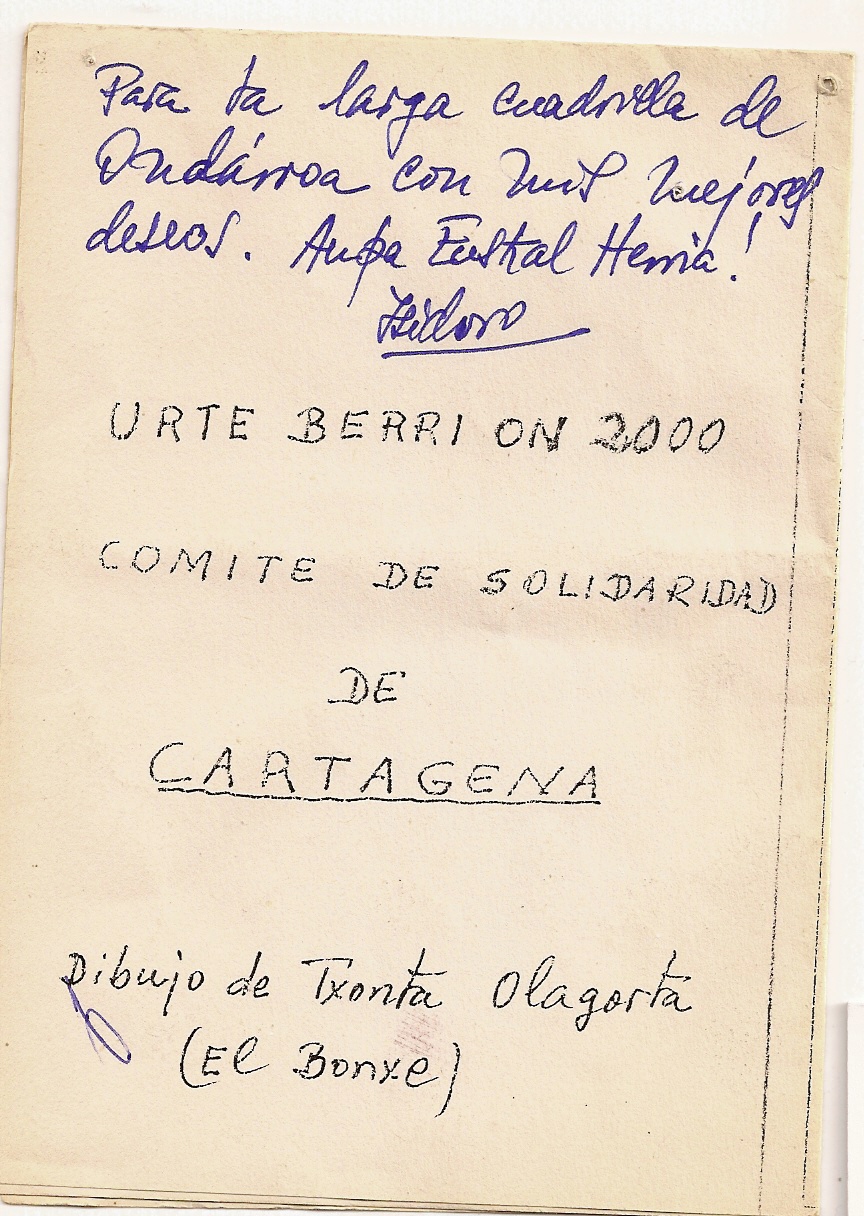 Para ta larga cuadrilla de
Ondárroa con mis mejores
deseos. Aupa Euskal Herria!
Isidoro
URTE BERRI ON 2000
COMITE DE SOLIDARIDAD
DE
CARTAGENA
Dibujo de Txonta Olagorta
(El Bonxe)